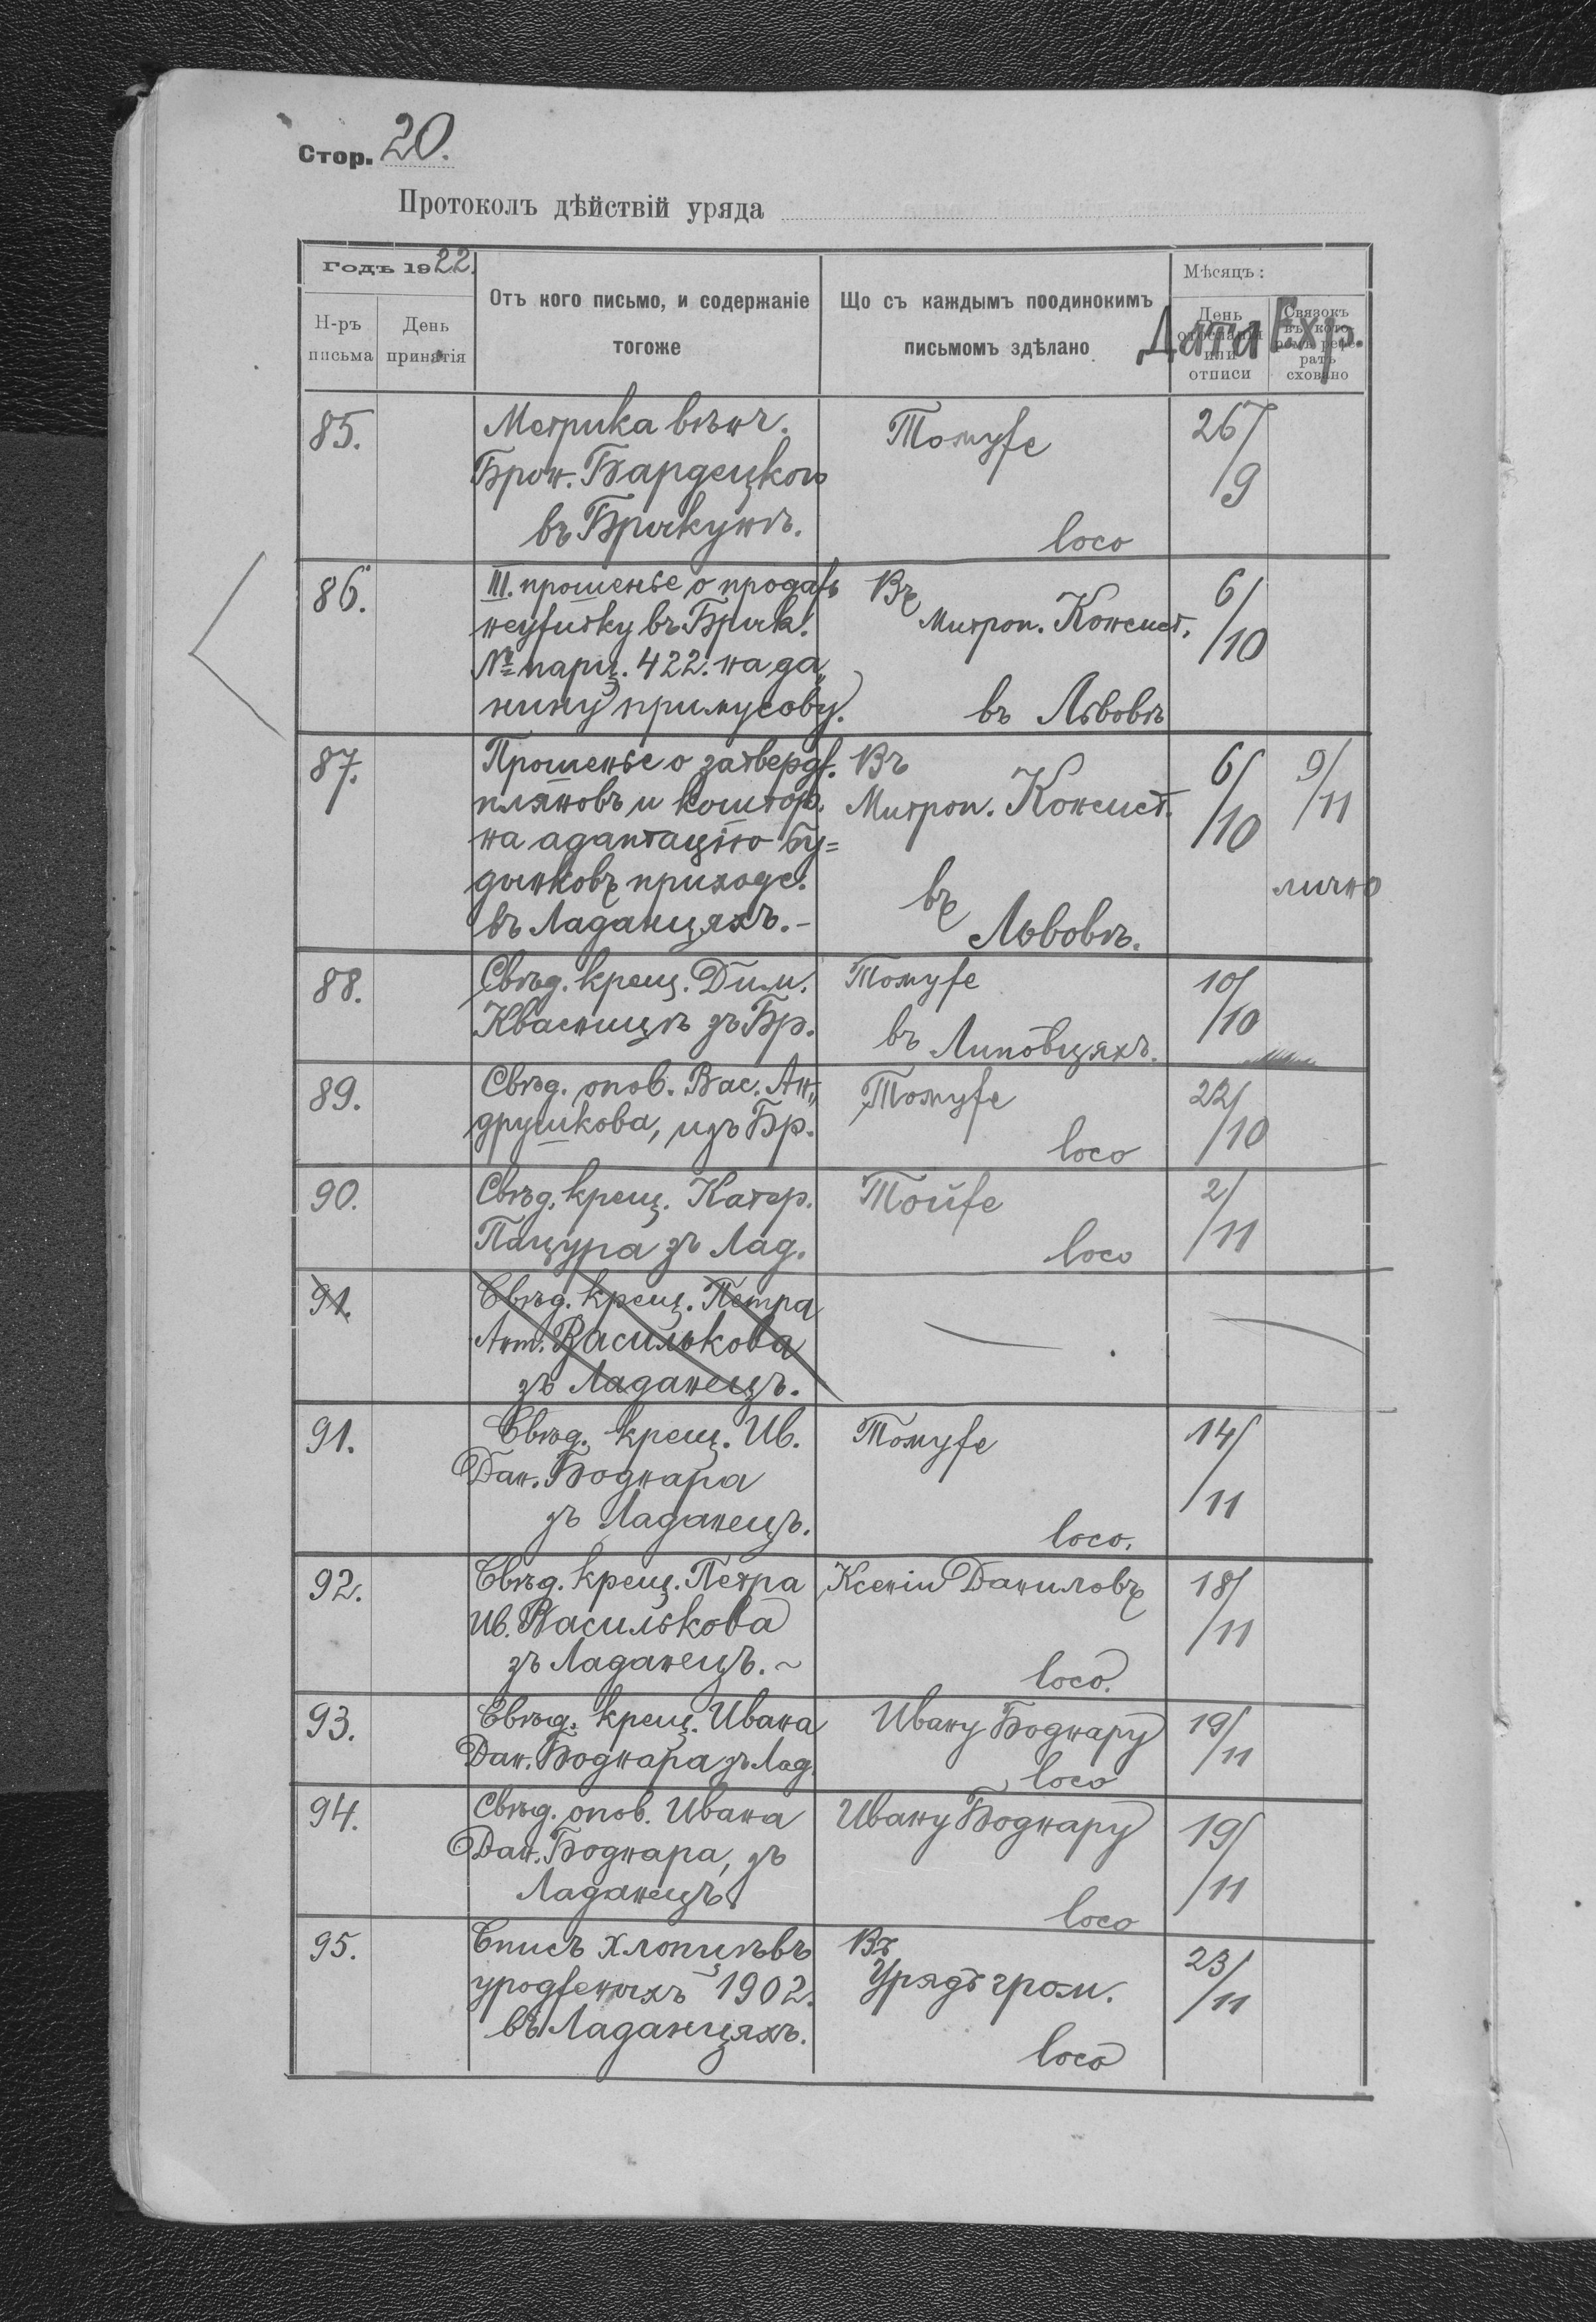 Стор. 20.
Протоколъ дѣйствій уряда
Годъ 1922.
Н-ръ письма
День принятія
Отъ кого письмо, и содержаніе тогоже
Що съ каждымъ поодинокимъ письмомъ здѣлано
Мѣсяцъ:
День отослання или отписи
Связокъ въ котромъ рефератъ сховано
Дата Exp.
85.
Метрика вѣнч.
Брон. Бардецкого
въ Брыкунѣ.
Томуже
loco
26/9
86.
III. прошеньє о продаж
неужитку въ Брык.
№ парц. 422. на да„
нину примусову.
Въ
Митроп. Консист.
въ Львовѣ
6/10
87.
Прошеньє о затвердж.
пляновъ и коштор.
на адаптацію бу=
дынковъ приходс.
въ Ладанцяхъ.-
Въ
Митроп. Консист.
въ
Львовѣ.
6/10
9/11
лично
88.
Свѣд. крещ. Дим.
Квасницѣ зъ Бр.
Томуже
въ Липовцяхъ.
10/10
89.
Свѣд. опов. Вас. Ан„
друшкова, изъ Бр.
Томуже
loco
22/10
90.
Свѣд. крещ. Катер.
Пацура зъ Лад.
Тойже
loco
2/11
91.
Свѣд. крещ. Петра
Ант. Василькова
зъ Ладанецъ.
91.
Свѣд. крещ. Ив.
Дан. Боднара
зъ Ладанецъ.
Томуже
loco.
14/11
92.
Свѣд. крещ. Петра
Ив. Василькова
зъ Ладанецъ. ~
Ксеніи Даниловъ
loco.
18/11
93.
Свѣд. крещ. Ивана
Дан. Боднара зъ Лад.
Ивану Боднару
loco
19/11
94.
Свѣд. опов. Ивана
Дан. Боднара, зъ
Ладанецъ
Ивану Боднару
loco
19/11
95.
Списъ хлопцѣвъ
уродженыхъ 1902.
въ Ладанцяхъ.
Въ
Урядъ гром.
loco
23/11